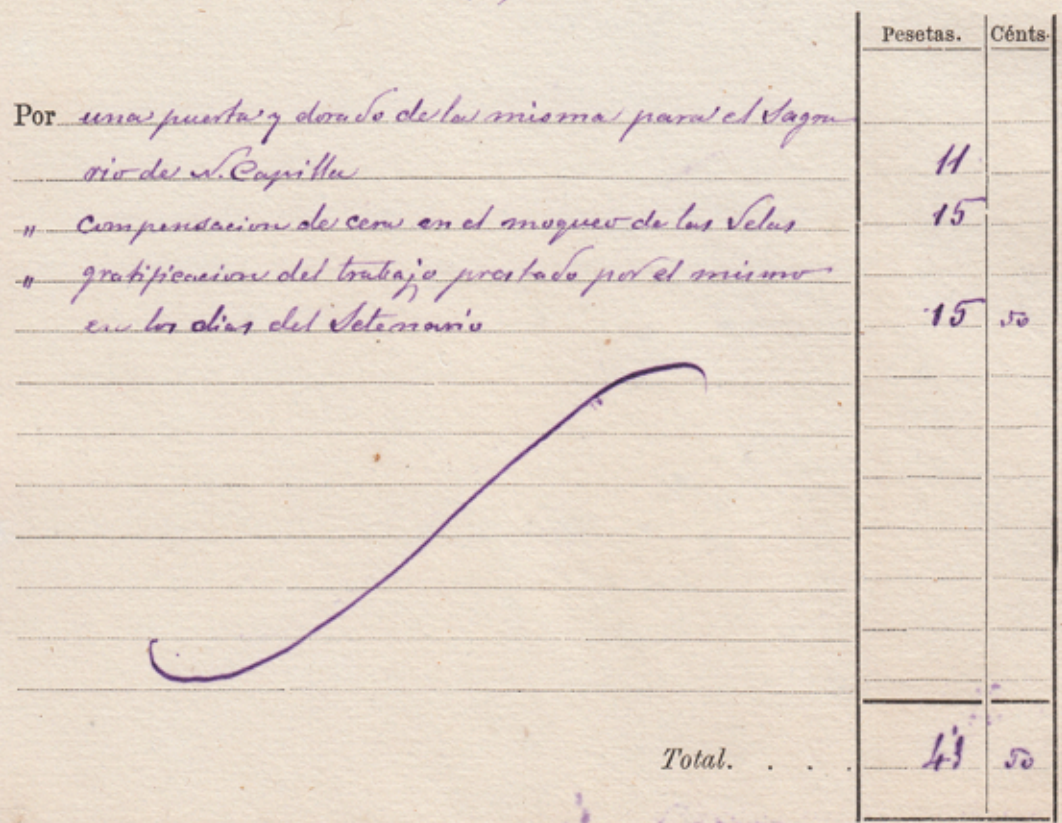 Pesetas. Cénts.
Por una puerta y dorado de la misma para el Sagra
rio de N. Capilla 11
" compensacion de cera en el moqueo de las Velas 15
" gratificacion del trabajo prestado por el mismo
en los dias del Setenario 15 50
Total. . . . 41 50